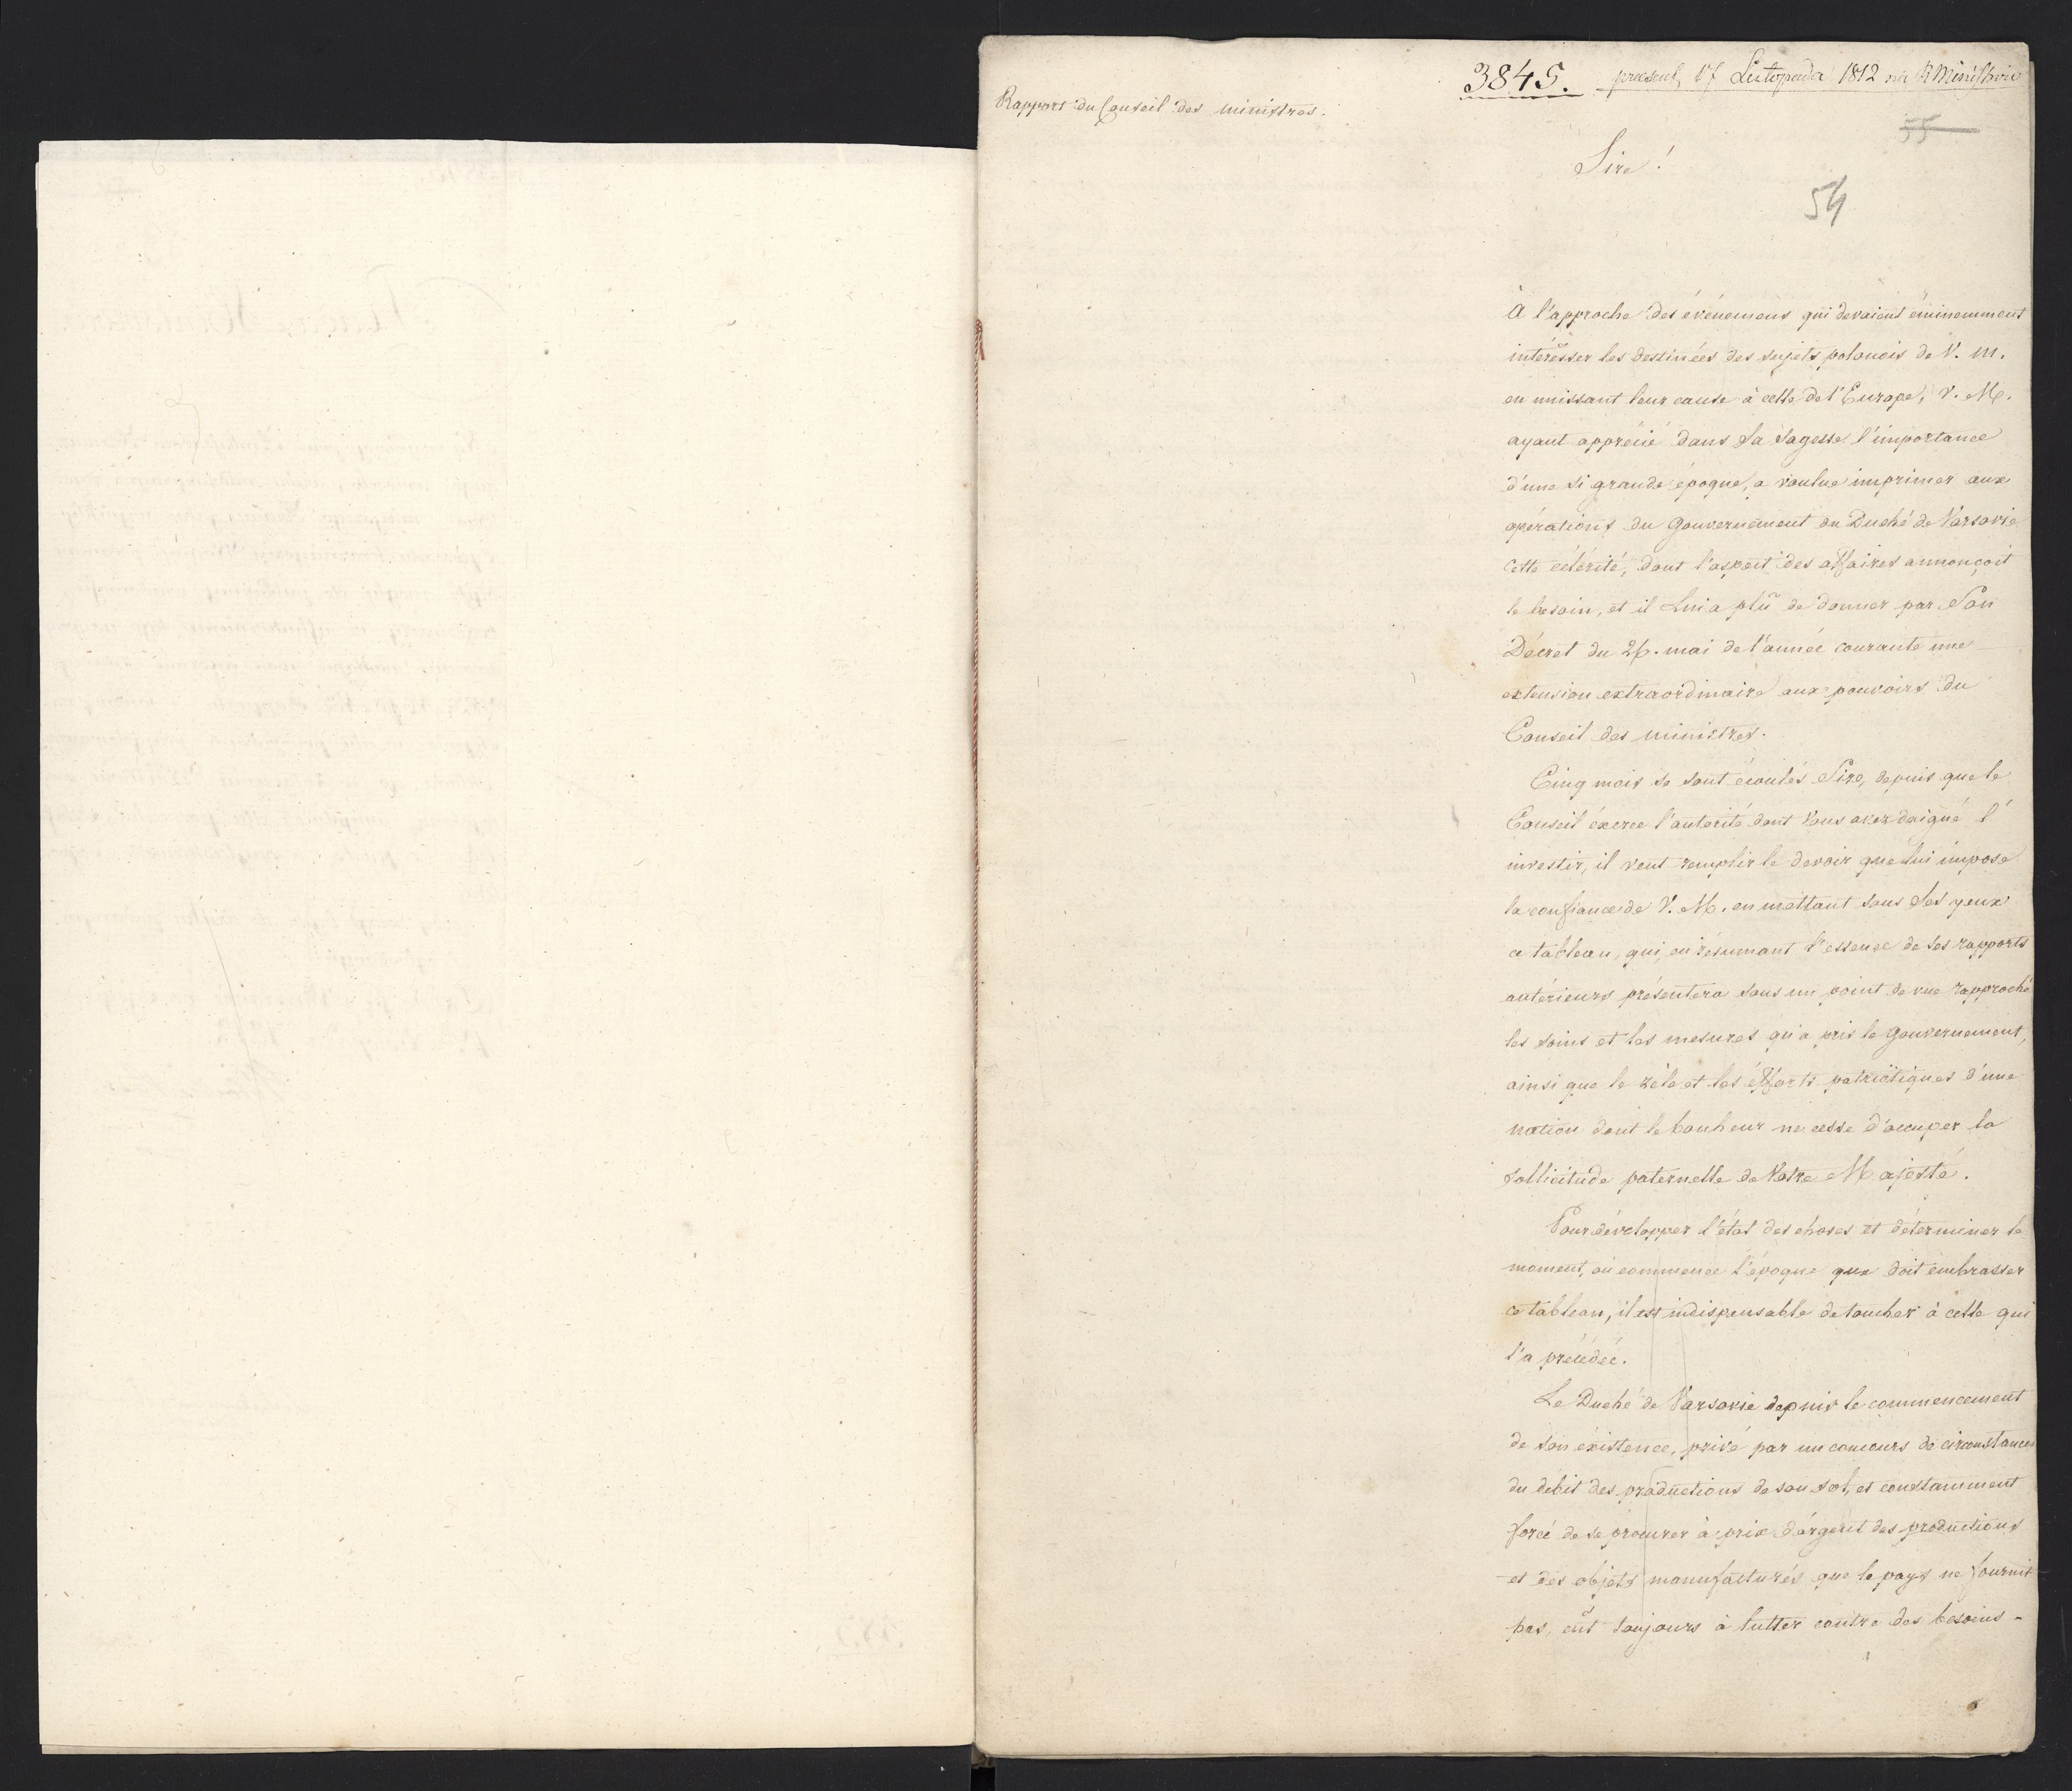 3845. praesent 17 Listopada 1812 na R Ministrow
Rapport du Conseil des ministres.
55
Sire!
54
À l'approche des événemens qui devaient éminemment
intéresser les destinées des sujets polonois de V. M.
en unissant leur cause à celle de l'Europe, V. M.
ayant apprécié dans Sa Sagesse l'importance
d'une si grande époque, a voulue imprimer aux
opérations du Gouvernement du Duché de Varsovie
cette célérité, dont l'aspect des affaires annonçoit
le besoin, et il Lui a plû de donner par Son
Décret du 26. mai de l'année courante une
extension extraordinaire aux pouvoirs du
Conseil des ministres.
Cinq mois se sont écoulés Sire, depuis que le
Conseil éxerce l'autorité dont Vous avez daigné l'
investir, il veut remplir le devoir que lui impose
la confiance de V. M. en mettant sous Ses yeux
ce tableau, qui, en résumant l'essence de ses rapports
antérieurs présentera sous un point de vue rapproché
les soins et les mesures qu'a pris le Gouvernement,
ainsi que le zèle et les éfforts patriotiques d'une
nation dont le bonheur ne cesse d'occuper la
sollicitude paternelle de Votre Majesté.
Pour développer l'état des choses et déterminer le
moment, où commence l'époque que doit embrasser
ce tableau, il est indispensable de toucher à celle qui
l'a précédée.
Le Duché de Varsovie depuis le commencement
de son éxistence, privé par un concours de circonstances
du débit des productions de son sol, et constamment
forcé de se procurer à prix d'argent des productions
et des objets manufacturés que le pays ne fournit
pas, eût toujours à lutter contre des besoins -